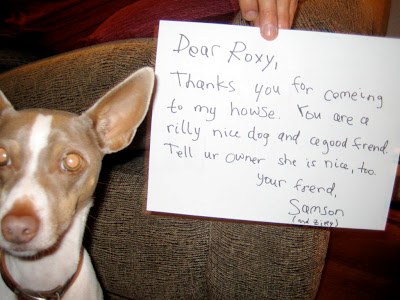 Dear Roxy,
Thanks you for comeing
to my howse. You are a
rilly nice dog and a good frend.
Tell ur owner she is nice, too.
your frend,
Samson
(and Ziggy)